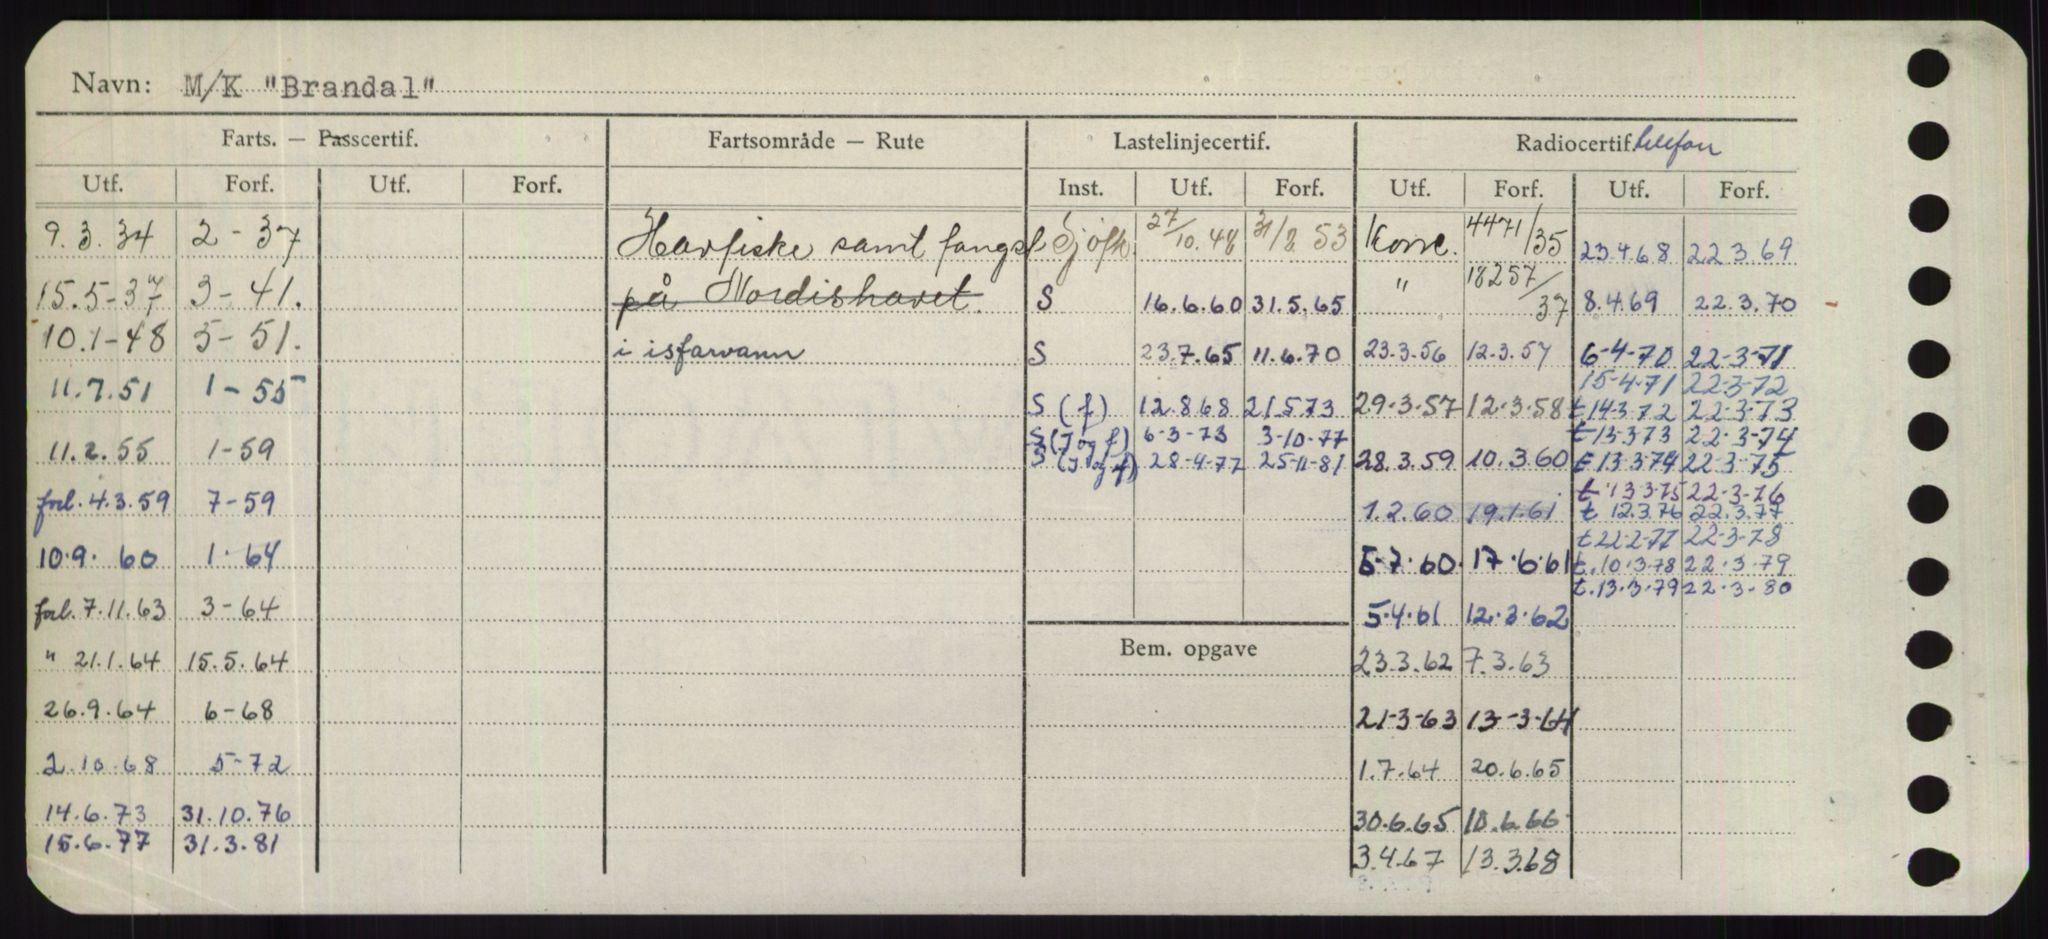 Navn: M/K "Brandal"
Farts. — Passcertif. Fartsområde — Rute Lastelinjecertif. Radiocertif. telefon
Utf. Forf. Utf. Forf. Inst. Utf. Forf. Utf. Forf. Utf. Forf.
9.3.34 2-37 Havfiske samt fangst Sjöfk. 27/10.48 31/8 53 Korre. 4471/35 23.4.68 22.3.69
15.5-37 3-41. på Nordishavet. S 16.6.60 31.5.65 " 18257/37 8.4.69 22.3.70
10.1-48 5-51. i isfarvann S 23.7.65 11.6.70 23.3.56 12.3.57 6-4-70 22-3-71
15-4-71 22-3-72
11.7.51 1-55 S (f) 12.8.68 21.5.73 29.3.57 12.3.58 t 14-3-72 22-3-73
S (J og f) 6-3-73 3-10-77 t 13-3-73 22-3-74
11.2.55 1-59 S (J og f) 28-4-77 25-11-81 28.3.59 10.3.60 t 13-3-74 22-3-75
t 13-3-75 22-3-76
forl. 4.3.59 7-59 1.2.60 19.1.61 t 12.3.76 22.3.77
t 22-2-77 22-3-78
10.9.60 1.64 5-7.60 17.6.61 t. 10.3.78 22.3.79
t. 13.3.79 22.3.80
forl. 7.11.63 3-64 5.4.61 12.3.62
Bem. opgave
" 21.1.64 15.5.64 23.3.62 7.3.63
26.9.64 6-68 21-3-63 13-3-64
2.10.68 5-72 1.7.64 20.6.65
14.6.73 31.10.76 30.6.65 18.6.66
15.6.77 31.3.81 3.4.67 13.3.68